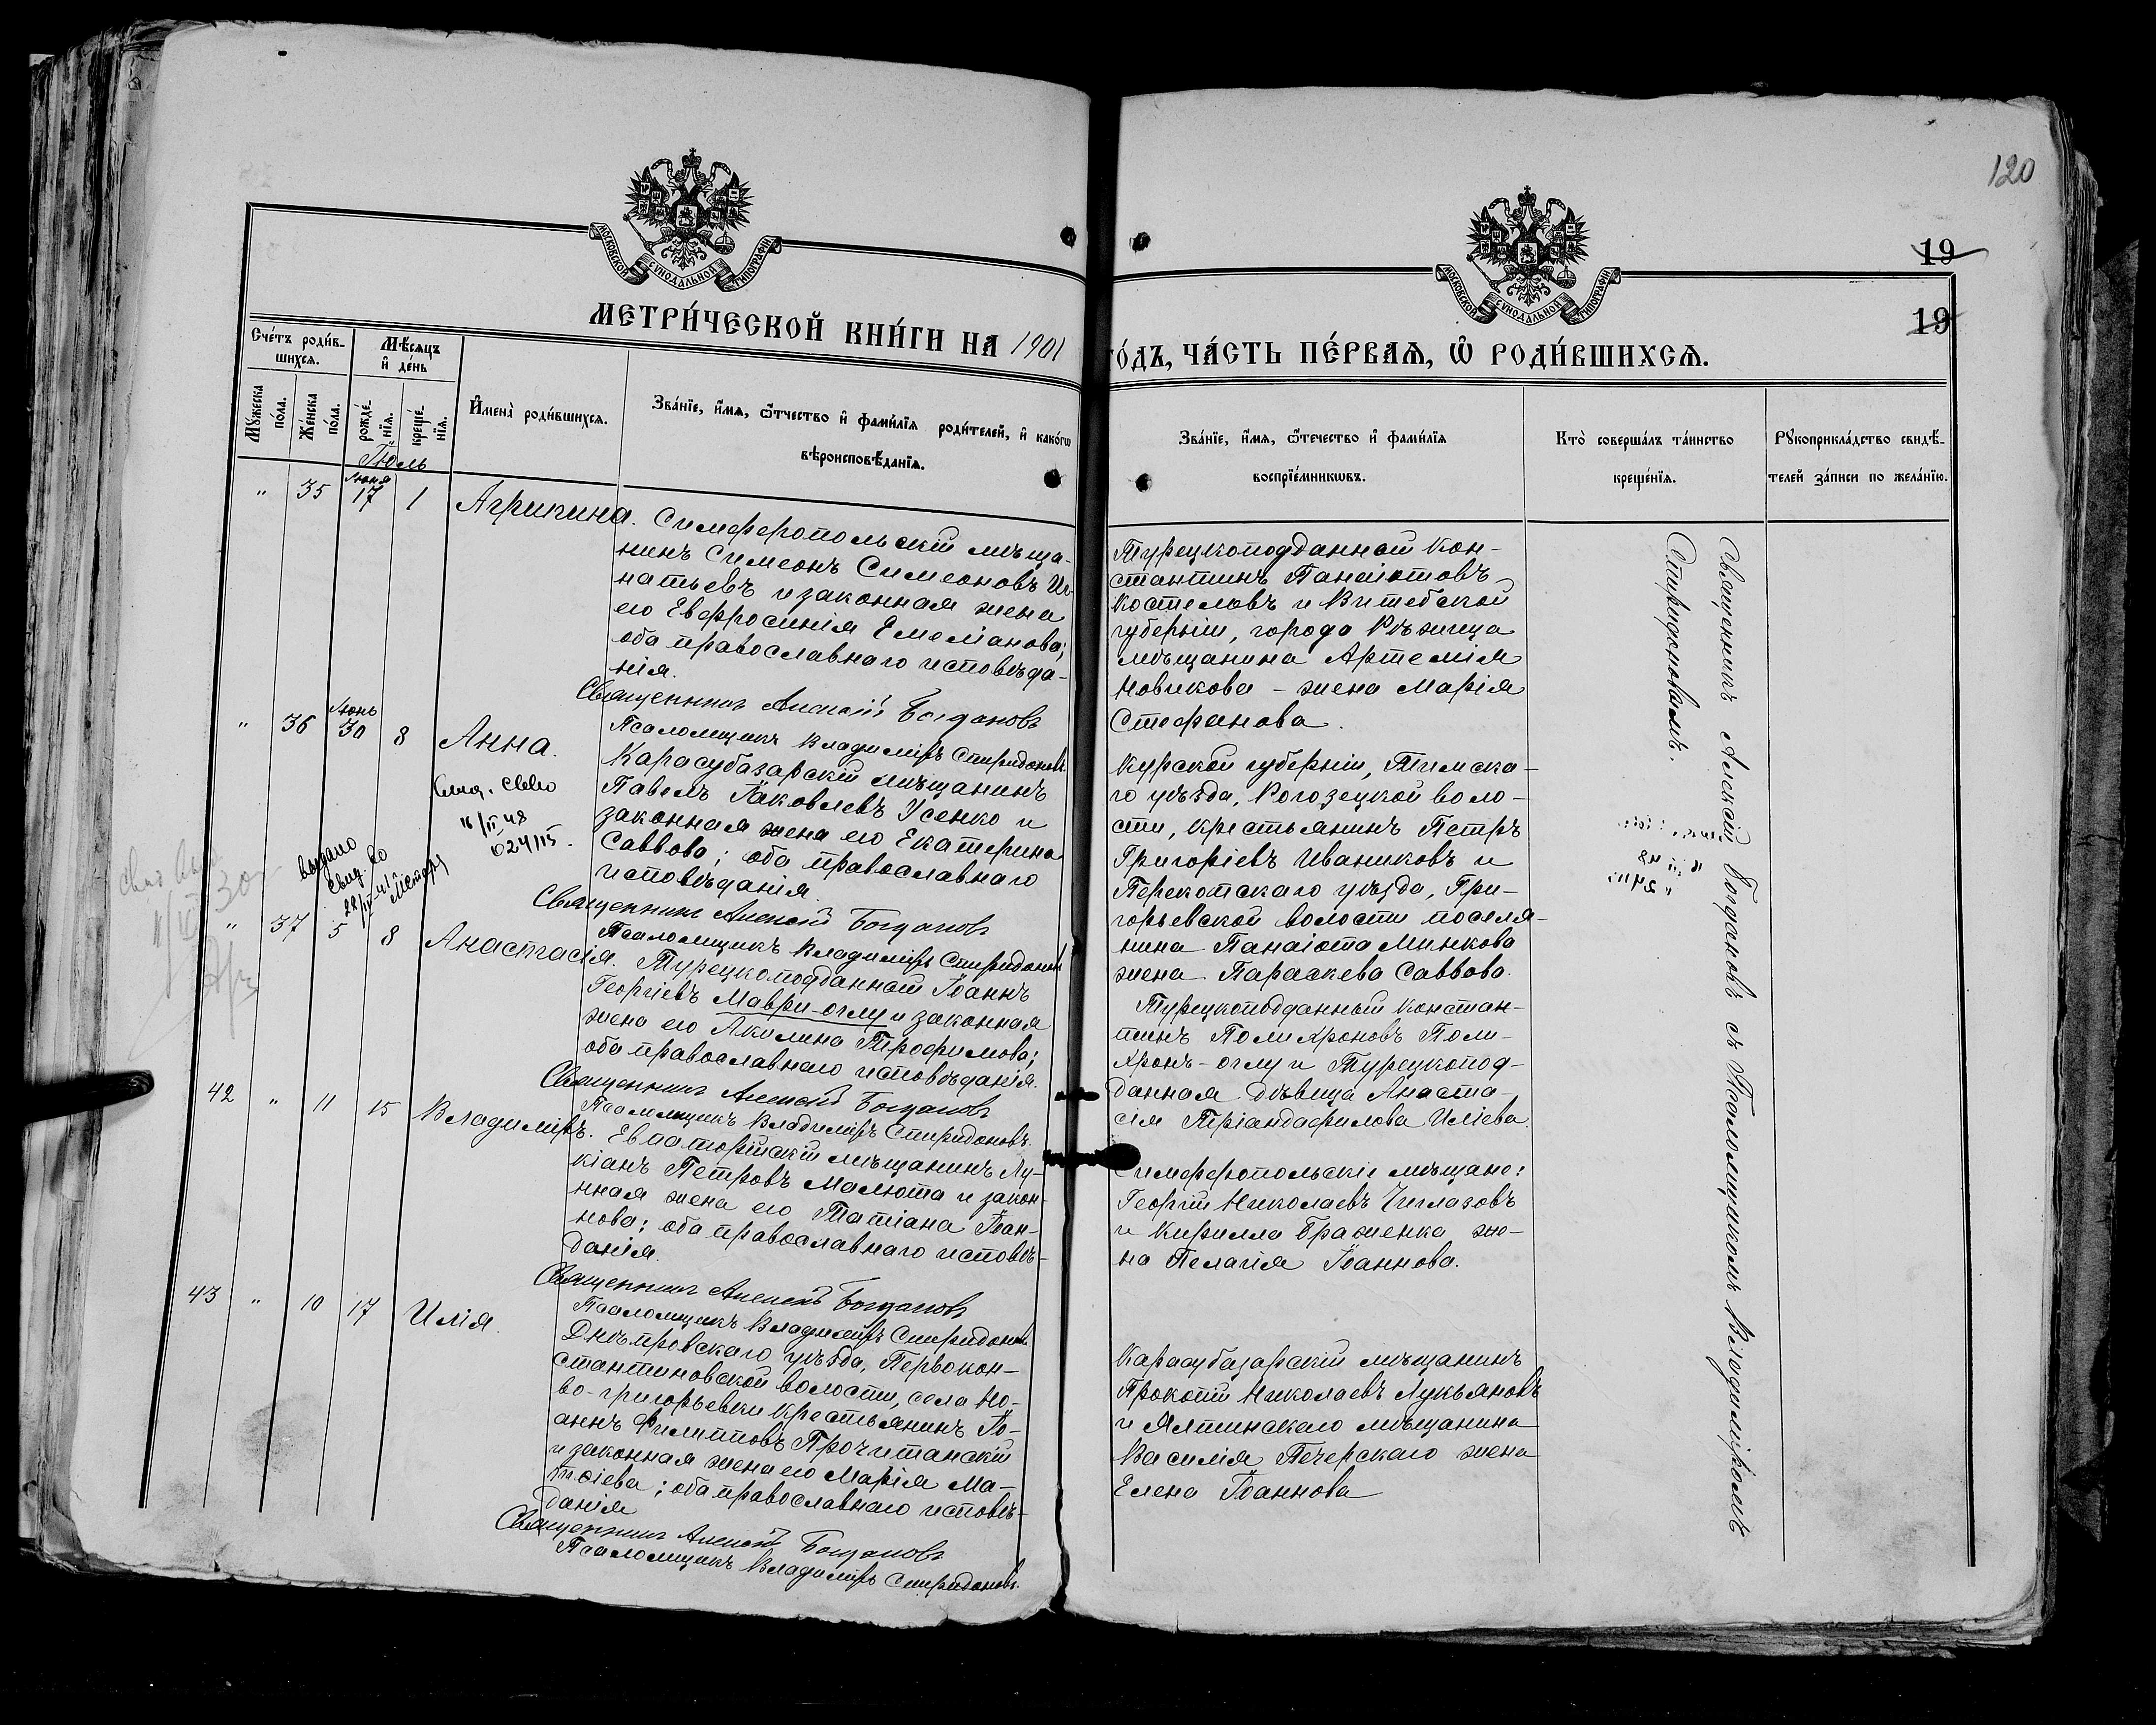 120
19
19
МОСКОВСКОЙ СѴНОДАЛЬНОЙ ТИПОГРАФІИ
МОСКОВСКОЙ СѴНОДАЛЬНОЙ ТИПОГРАФІИ
МЕТРИ́ЧЕСКОЙ КНИ́ГИ НА 1901
ГО́ДЪ, ЧА́СТЬ ПЕ́РВАѦ, Ѿ РОДИ́ВШИХСѦ.
Сче́тъ роди́в-
шихсѧ.
Мꙋжеска
по́ла.
Же́нска
по́ла.
Мѣ́сяцъ
и҆ де́нь
рожде́-
нїѧ.
креще́-
нїѧ.
И҆мена̀ роди́вшихсѧ.
Зва́нїе, и҆́мѧ, ѻ҆́тчество и҆ фами́лїѧ роди́телей, и҆ како́гѡ
вѣроисповѣ́данїѧ.
Зва́нїе, и҆́мѧ, ѻ҆те́чество и҆ фами́лїѧ
воспрїе́мникѡвъ.
Кто̀ соверша́лъ та́инство
креще́нїѧ.
Рꙋкоприкла́дство свидѣ́-
телей за́писи по жела́нїю.
Іюль
" 35 Іюня 17 1 Агрипина.
Симферопольскій мѣща-
нинъ Симеонъ Симеоновъ Иг-
натьевъ и законная жена
его Евфросинія Емеліанова;
оба православнаго исповѣда-
нія.
Священникъ Алексій Богдановъ
Псаломщикъ Владиміръ Спиридоновъ
Турецкоподданный Кон-
стантинъ Панаіотовъ
Костеловъ и Витебской
губерніи, города Рѣжица
мѣщанина Артемія
Новикова – жена Марія
Стефанова.
" 36 Іюнь 30 8 Анна.
16/II 48
024/15.
Карасубазарскій мѣщанинъ
Павелъ Іаковлевъ Усенко и
законная жена его Екатерина
Саввова; оба православнаго
исповѣданія.
Священникъ Алексій Богдановъ
Псаломщикъ Владиміръ Спиридоновъ
Курской губерніи, Тимска-
го уѣзда, Рогозецкой воло-
сти, крестьянинъ Петръ
Григоріевъ Иваниковъ и
Перекопскаго уѣзда, Гри-
горьевской волости поселя-
нина Панаіота Минкова
жена Параскева Саввова.
выдано
свид. во
" 37 5 8 Анастасія.
Турецкоподданный Іоаннъ
Георгіевъ Маври-оглу и законная
жена его Акилина Трофимова;
оба православнаго исповѣданія.
Священникъ Алексій Богдановъ
Псаломщикъ Владиміръ Спиридоновъ.
Турецкоподданный Констан-
тинъ Полихроновъ Поли-
хронъ-оглу и Турецкопод-
данная дѣвица Анаста-
сія Тріандафилова Иліева.
42 " 11 15 Владиміръ.
Евпаторійскій мѣщанинъ Лу-
кіанъ Петровъ Малюта и закон-
нная жена его Татіана Іоан-
нова; оба православнаго исповѣ-
данія.
Священникъ Алексій Богдановъ
Псаломщикъ Владиміръ Спиридоновъ
Симферопольскіе мѣщане:
Георгій Николаевъ Чиглазовъ
и Кирилла Браженка же-
на Пелагія Іоаннова.
43 " 10 17 Илія.
Днѣпровскаго уѣзда, Первокон-
стантиновской волости, села Но-
во-григорьевки крестьянинъ Іо-
аннъ Филипповъ Прочитанскій
и законная жена его Марія Ма-
тѳіева; оба православнаго исповѣ-
данія
Священникъ Алексій Богдановъ
Псаломщикъ Владиміръ Спиридоновъ.
Карасубазарскій мѣщанинъ
Прокопій Николаевъ Лукьяновъ
и Ялтинскаго мѣщанина
Василія Печерскаго жена
Елена Іоаннова
Священникъ Алексій Богдановъ съ Псаломщикомъ Владиміромъ
Спиридоновымъ.